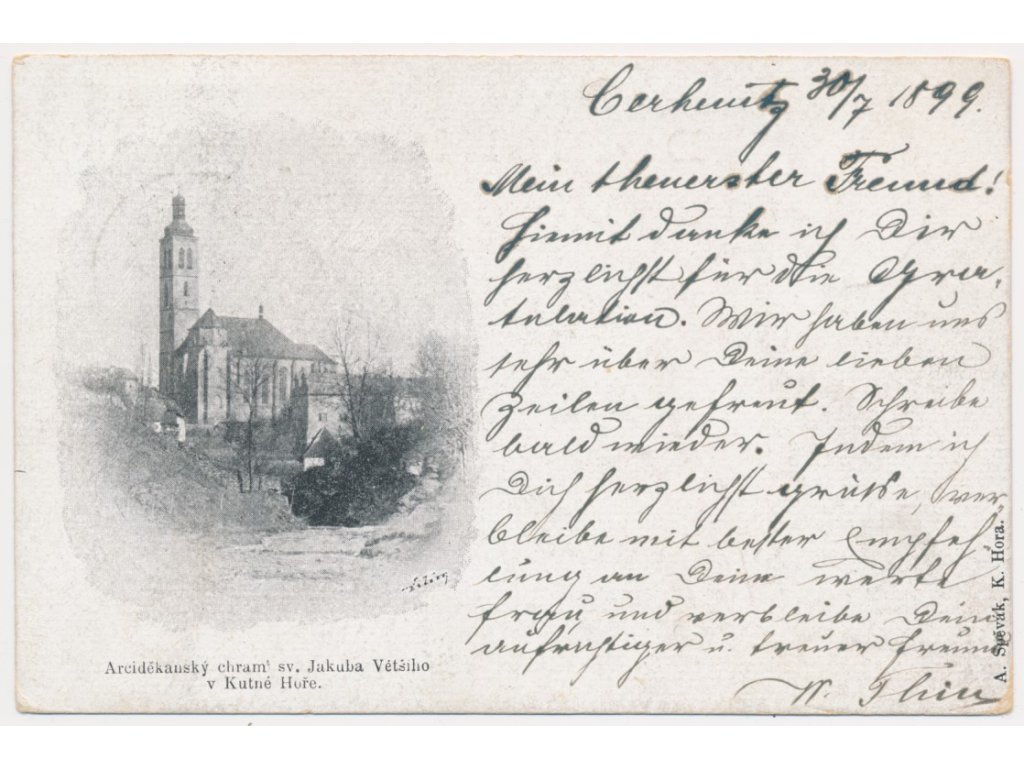 Cerhenitz 30/7 1899.
Mein theuerster Freund!
Hiemit danke ich Dir
herzlichst für die Gra-
tulation. Wir haben uns
sehr über Deine lieben
Zeilen gefreut. Schreibe
bald wieder. Indem ich
Dich herzlichst grüße, ver
bleibe mit bester Empfeh
lung an Deine werte
Frau und verbleibe Dein
aufrichtiger u. treuer Freund
Arciděkanský chram' sv. Jakuba Většiho
v Kutné Hoře.
A. Spěvák, K. Hora.